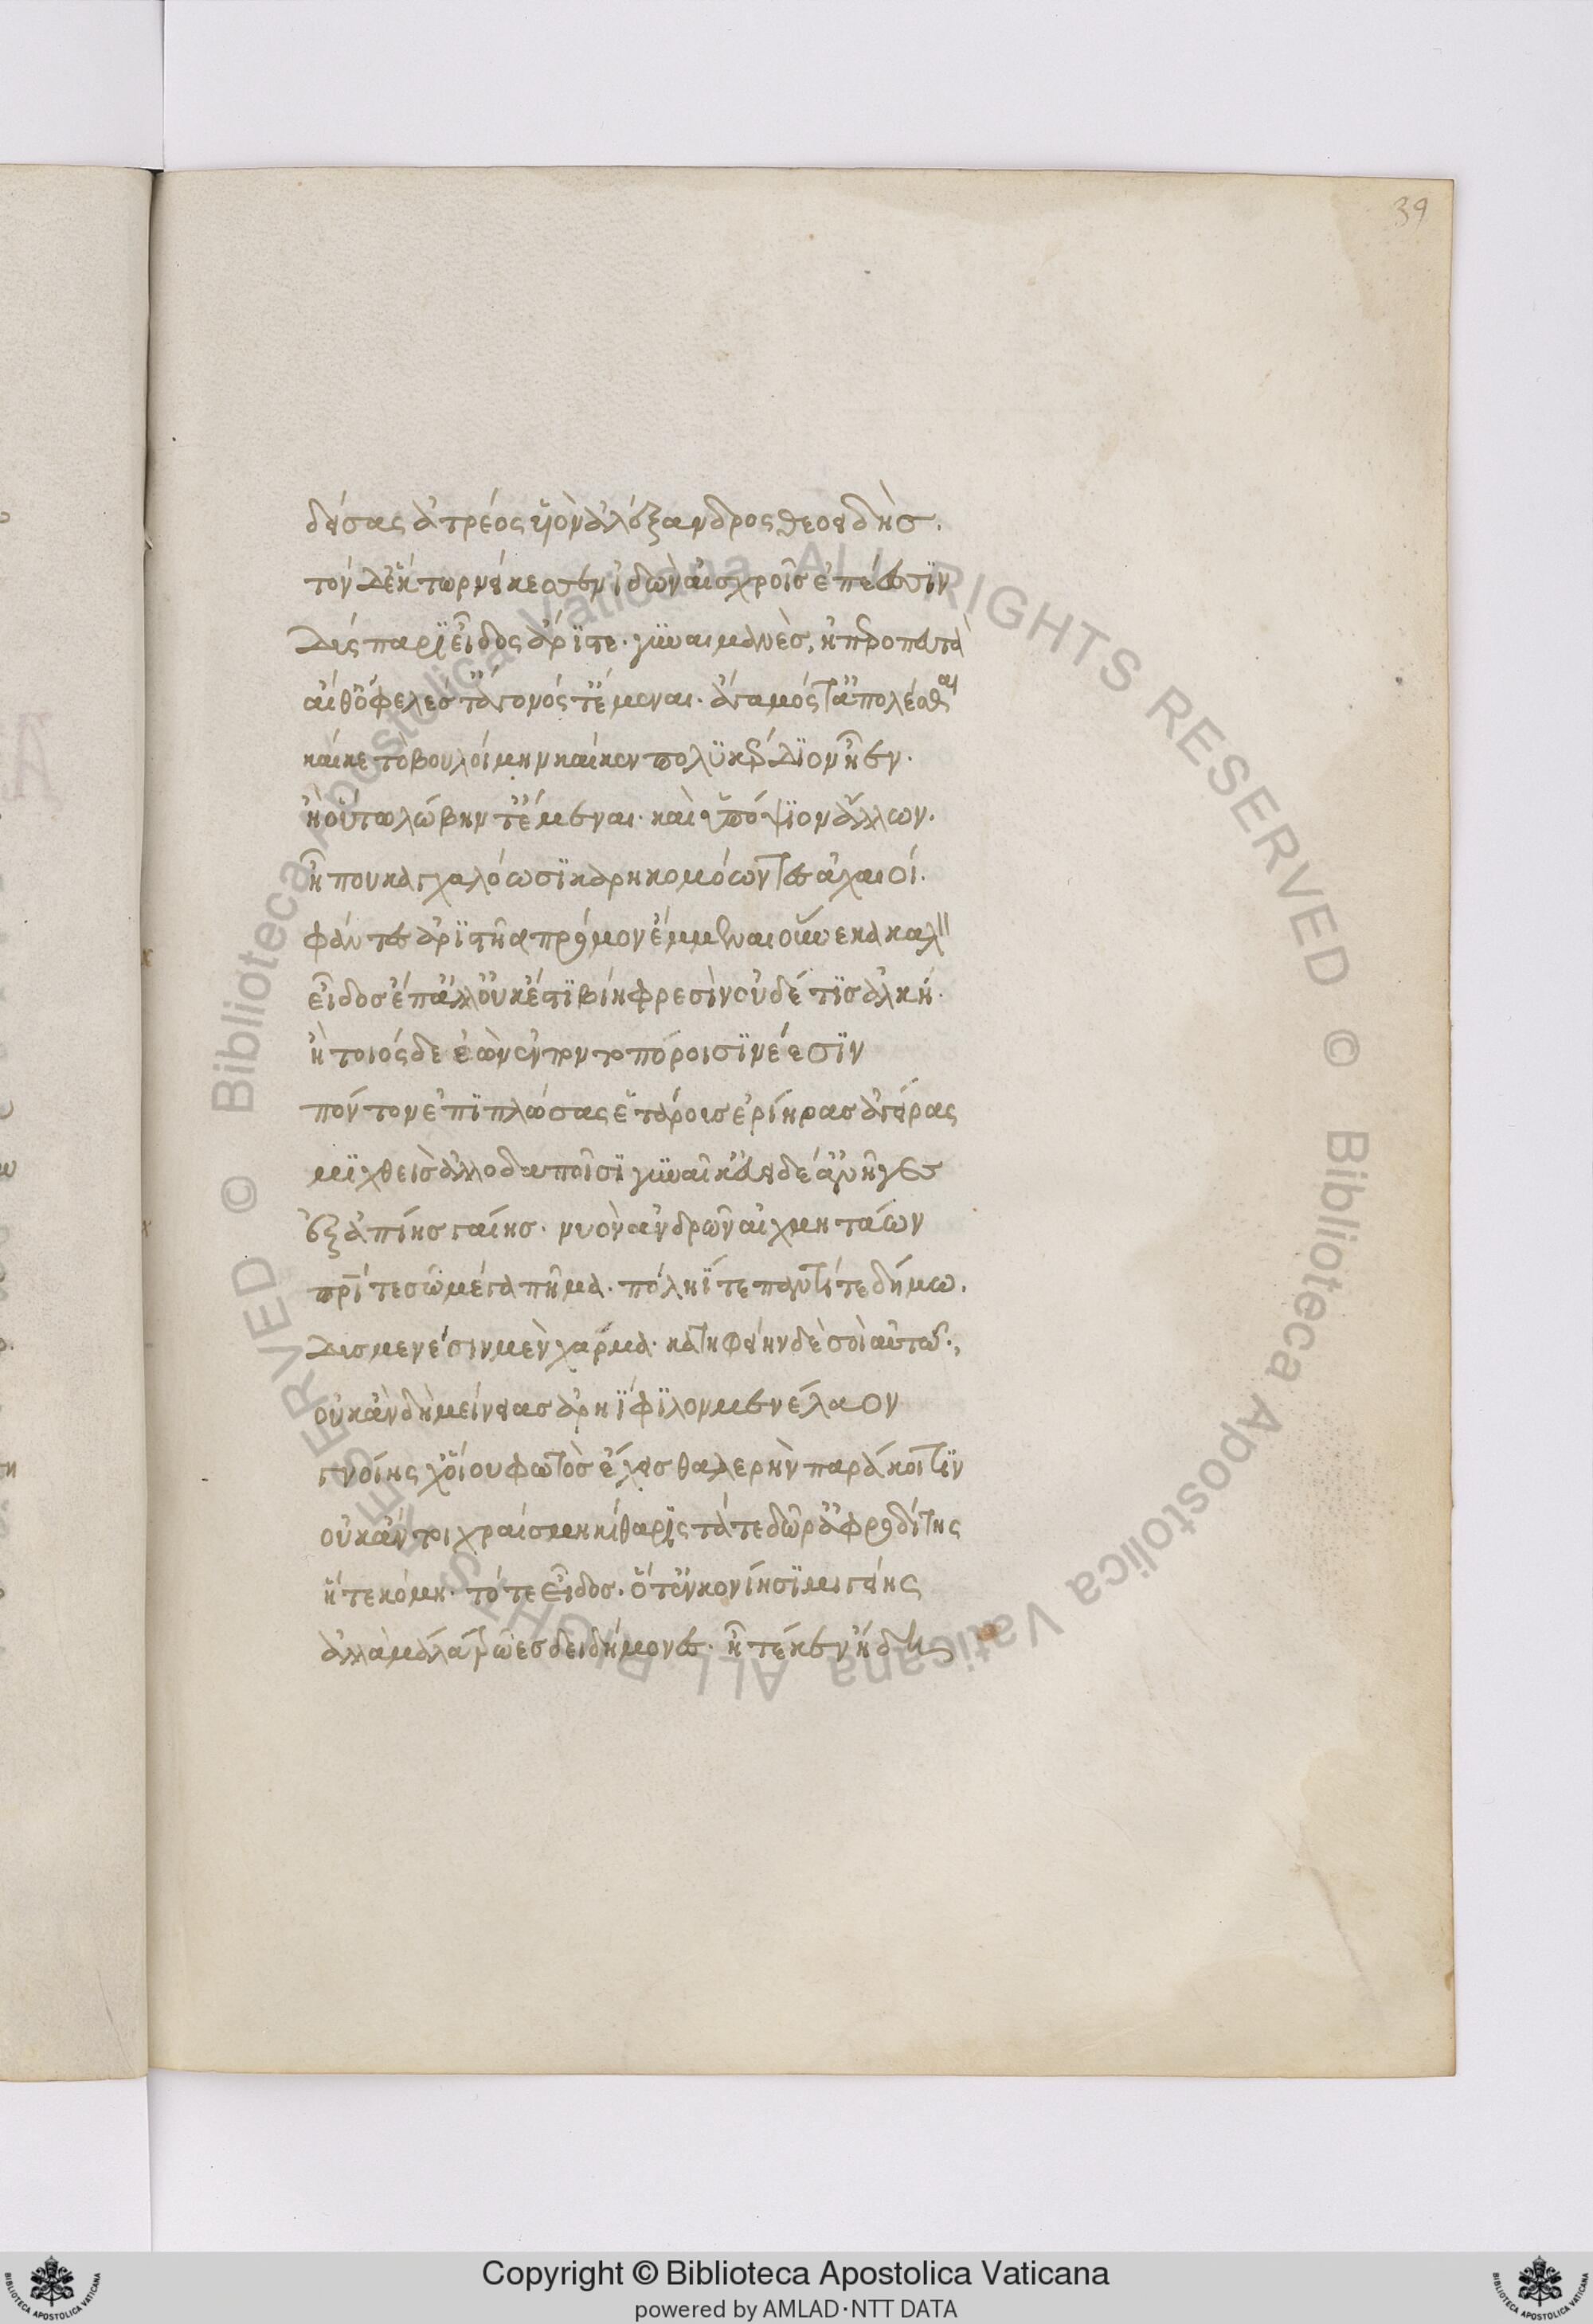 39
δείσας ἀτρέος υἱὸν ἀλέξανδρος θεοειδὴς.
τὸν δ' ἕκτωρ νείκεσσεν ἰδὼν αἰσχροῖς ἐπέεσσϊν
Δύς παρϊ εἶδος ἄρϊστε. γϋναιμανὲς, ἠπεροπευτὰ
αἴθ' ὄφελες τ' ἄγονός τ' ἔμεναι. ἄγαμός τ' ἀπολέσθαι
καί κε τὸ βουλοίμην καί κεν πολὺ κέρδϊον ἦεν.
ἢ οὕτω λώβην τ' ἔμεναι. καὶ ὑπόψϊον ἄλλων.
ἦ που καγχαλόωσϊ καρηκομόωντες ἀχαιοί.
φάντες ἀρϊστῆα πρόμον ἔμμεναι οὕνεκα καλ
εἶδος ἔπ' ἀλλ' οὐκ ἔστϊ βίη φρεσὶν οὐδέ τϊς ἀλκή.
ἢ τοιόςδε ἐὼν ἐν ποντοπόροισϊ νέεσϊν
πόντον ἐπϊπλώσας ἑτάροις ἐρίηρας ἀγείρας
μϊχθεὶς ἀλλοδαποῖσϊ γϋναῖκ' εὐειδέ' ἀνῆγες
ἐξ ἀπίης γαίης. νυὸν ἀνδρῶν αἰχμητάων
πατρί τε σῶ μέγα πῆμα. πόληϊ τε παντί τε δήμω.
Δυσμενέσιν μὲν χάρμα. κατηφείην δὲ σοὶ αὐτῶ.,
οὐκ ἂν δὴ μείνειας ἀρηΐφϊλον μενέλαον
γνοίης χ' οἵου φωτὸς ἔχεις θαλερὴν παράκοιτϊν
οὐκ ἄν τοι χραίσμη κίθαρϊς τά τε δῶρ' ἀφροδίτης
ἥ τε κόμη. τό τε εἶδος. ὅτ' ἐν κονίησϊ μιγείης
ἀλλὰ μάλα τρῶες δειδήμονες. ἦ τέ κεν ἤδη
Copyright © Biblioteca Apostolica Vaticana
powered by AMLAD·NTT DATA
© Biblioteca Apostolica Vaticana ALL RIGHTS RESERVED © Biblioteca Apostolica Vaticana ALL RIGHTS RESERVED